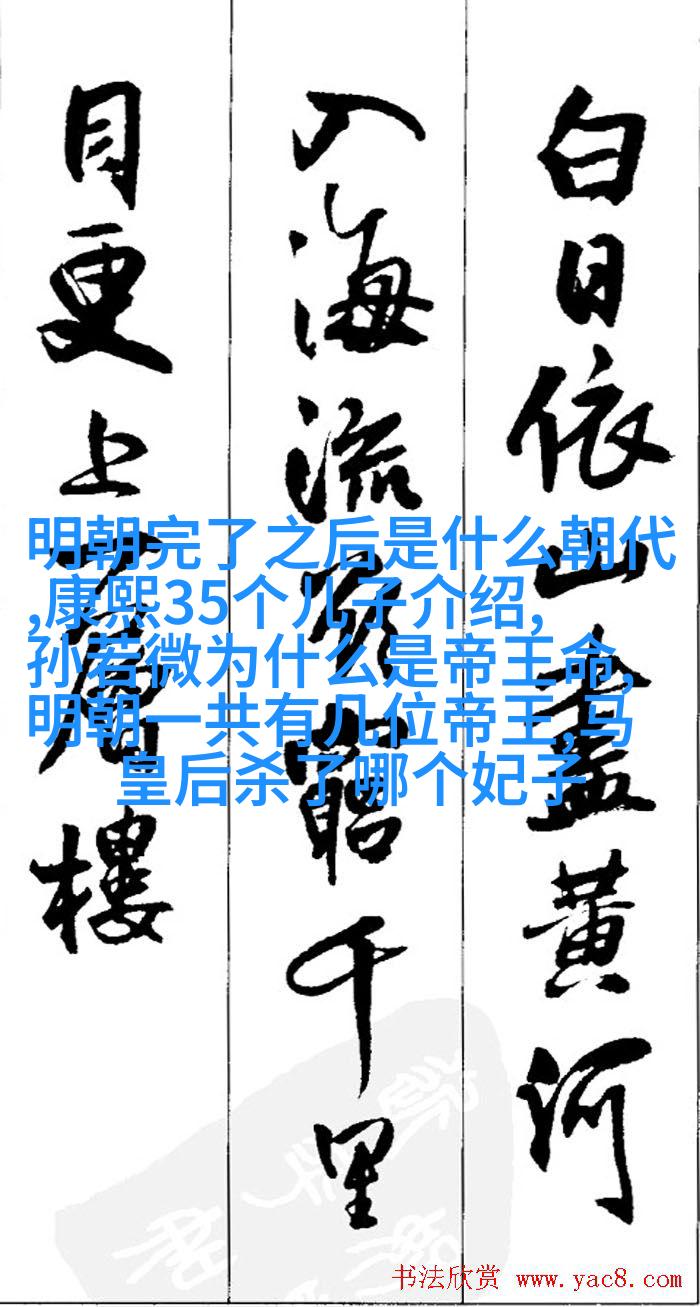 白日依山盡黄河
入海流欲窮千里
目更上一層樓
明朝完了之后是什么朝代
,康熙35个儿子介绍,
孙若微为什么是帝王命,
明朝一共有几位帝王,马
皇后杀了哪个妃子
书法欣赏 www.yac8.com